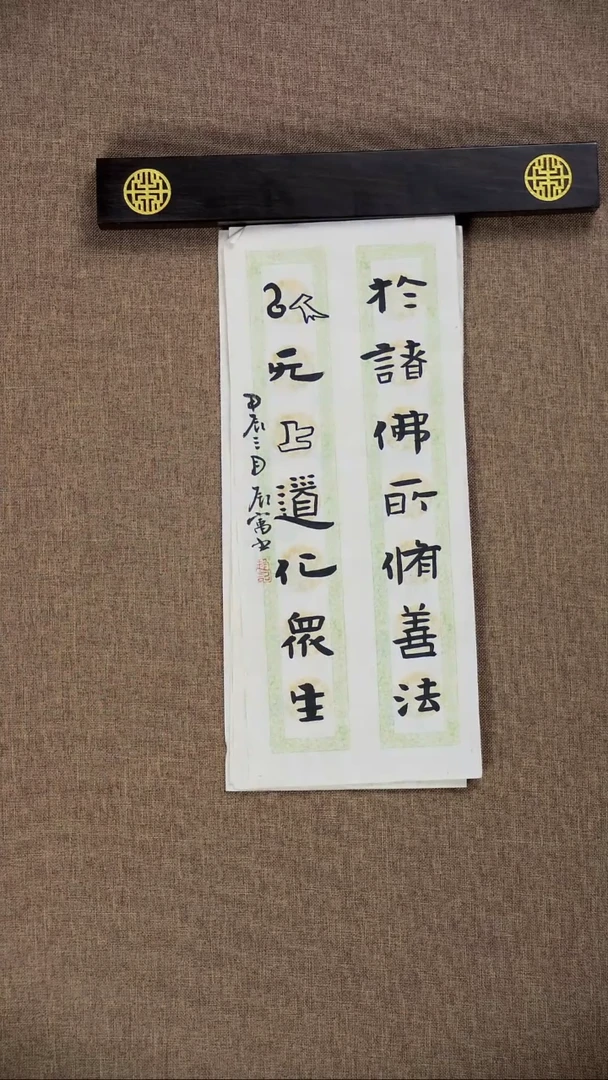 於諸佛所脩善法
以无上道化眾生
甲辰三月